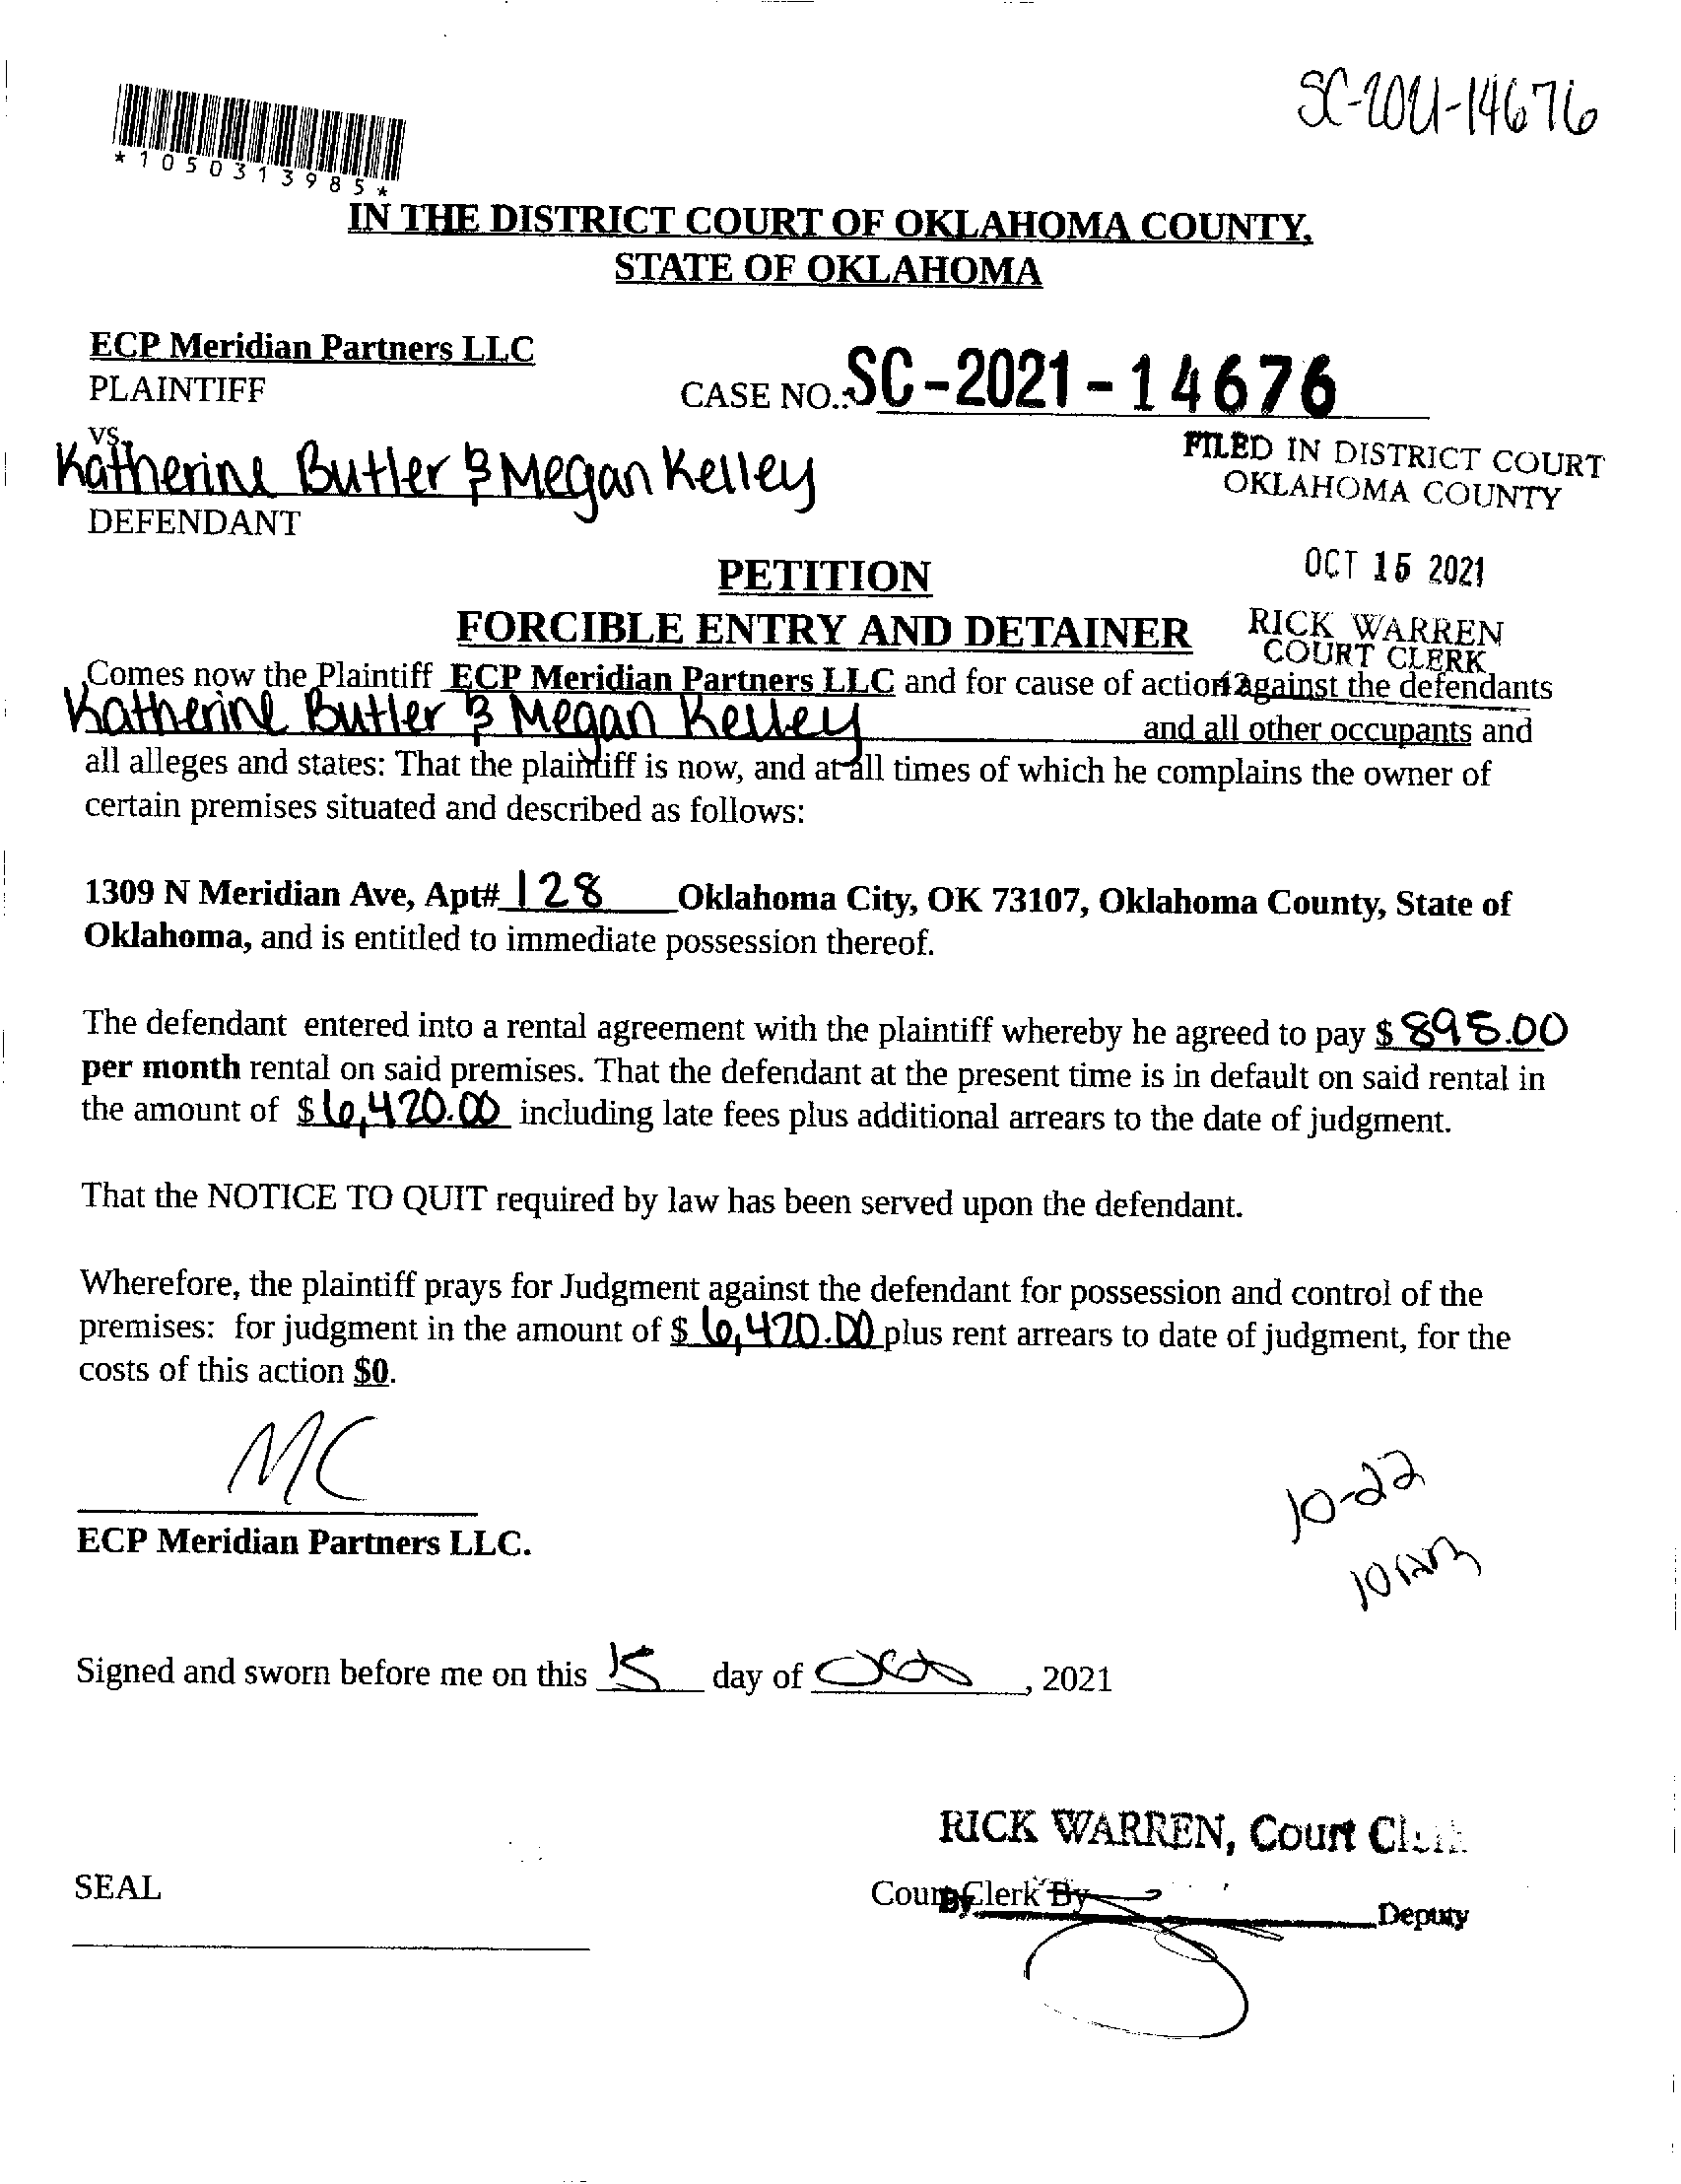 SC-2021-14676
*1050313985*
IN THE DISTRICT COURT OF OKLAHOMA COUNTY,
STATE OF OKLAHOMA
ECP Meridian Partners LLC
PLAINTIFF
CASE NO.: SC-2021-14676
vs.
Katherine Butler & Megan Kelley
DEFENDANT
FILED IN DISTRICT COURT
OKLAHOMA COUNTY
OCT 15 2021
RICK WARREN
COURT CLERK
PETITION
FORCIBLE ENTRY AND DETAINER
Comes now the Plaintiff ECP Meridian Partners LLC and for cause of action against the defendants
Katherine Butler & Megan Kelley and all other occupants and
all alleges and states: That the plaintiff is now, and at all times of which he complains the owner of
certain premises situated and described as follows:
1309 N Meridian Ave, Apt# 128 Oklahoma City, OK 73107, Oklahoma County, State of
Oklahoma, and is entitled to immediate possession thereof.
The defendant entered into a rental agreement with the plaintiff whereby he agreed to pay $ 895.00
per month rental on said premises. That the defendant at the present time is in default on said rental in
the amount of $ 6,420.00 including late fees plus additional arrears to the date of judgment.
That the NOTICE TO QUIT required by law has been served upon the defendant.
Wherefore, the plaintiff prays for Judgment against the defendant for possession and control of the
premises: for judgment in the amount of $ 6,420.00 plus rent arrears to date of judgment, for the
costs of this action $0.
MC
ECP Meridian Partners LLC.
10-22
10am
Signed and sworn before me on this 15 day of Oct, 2021
RICK WARREN, Court
SEAL
Court Clerk By
By Deputy